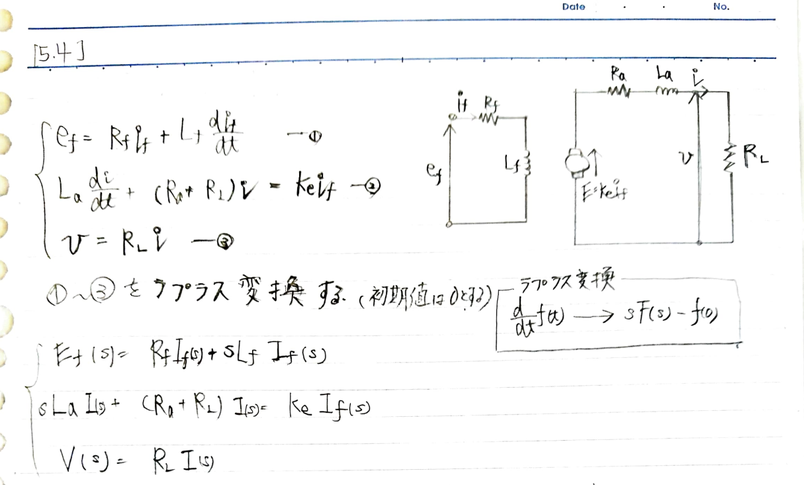 Date ・ ・ No.
[5.4]
ef = Rf if + Lf dif/dt —①
La di/dt + (Ra + RL) i = Ke if —②
v = RL i —③
if Rf
ef
Lf
Ra La i
E=Ke if
v
RL
①～③をラプラス変換する.(初期値は0とする)
ラプラス変換
d/dt f(t) → sF(s) - f(0)
Ef(s) = Rf If(s) + sLf If(s)
sLa I(s) + (Ra + RL) I(s) = Ke If(s)
V(s) = RL I(s)